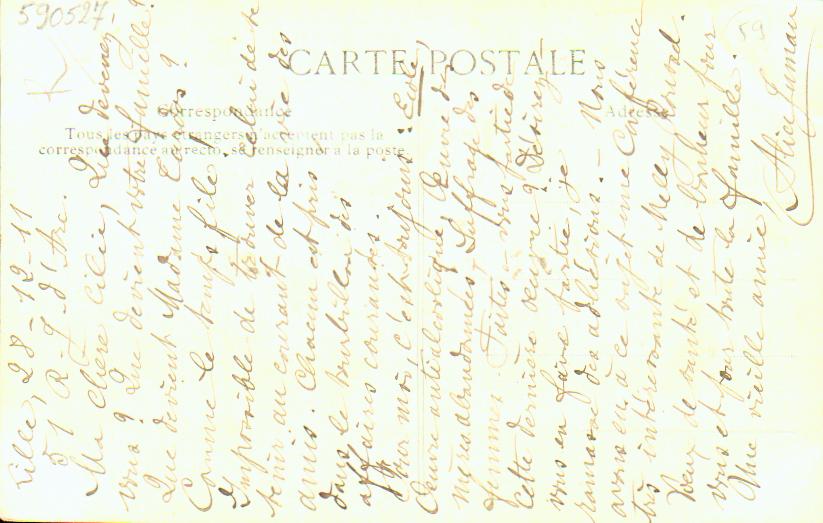 590527
59
CARTE POSTALE
Correspondance
Adresse
Tous les pays étrangers n'acceptent pas la
correspondance au recto, se renseigner à la poste.
Lille, 28-12-11
51 R-J-d'Arc.
Ma chère Cilie, Que devenez
vous? Que devient votre famille?
Que devient Madame
Comme le temps file!
Impossible de trouver un peu de te
tenir au courant de la vie des
amis. Chacun est pris
dans le tourbillon des
affaires courantes.
Pour moi, c'est toujours: Ecole,
Œuvre antialcoolique, Œuvre de
mères abandonnées, Suffrage des
femmes. Faites-vous partie de
cette dernière œuvre? Désirez
vous en faire partie, je
ramasse des adhésions. - Nous
avons eu à ce sujet une Conférence
très intéressante de Melly
Vœux de santé et de bonheur pour
vous et pour toute la famille.
Une vieille amie,
Alice